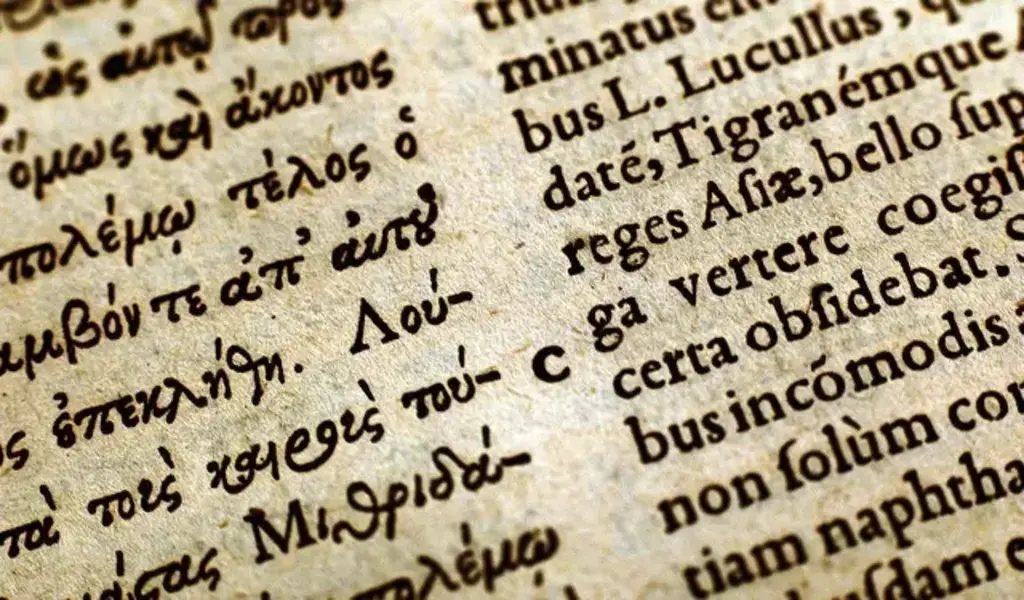 ὡς αὐτοῦ
ὅμως καὶ ἄκοντος
πολέμῳ τέλος ὁ
αμβόν τε ἀπ' αὐτοῦ
ς ἐπεκλήθη. Λού-
τὰ τοὺς καιροὺς τού-
Μιθριδά-
πολέμῳ
minatus
bus L. Lucullus,
daté, Tigranémque
reges Aſiæ, bello ſup
ga vertere coegiſ
C
certa obſidebat. S
bus incõmodis
non ſolùm con
tiam naphtha
ſdam e